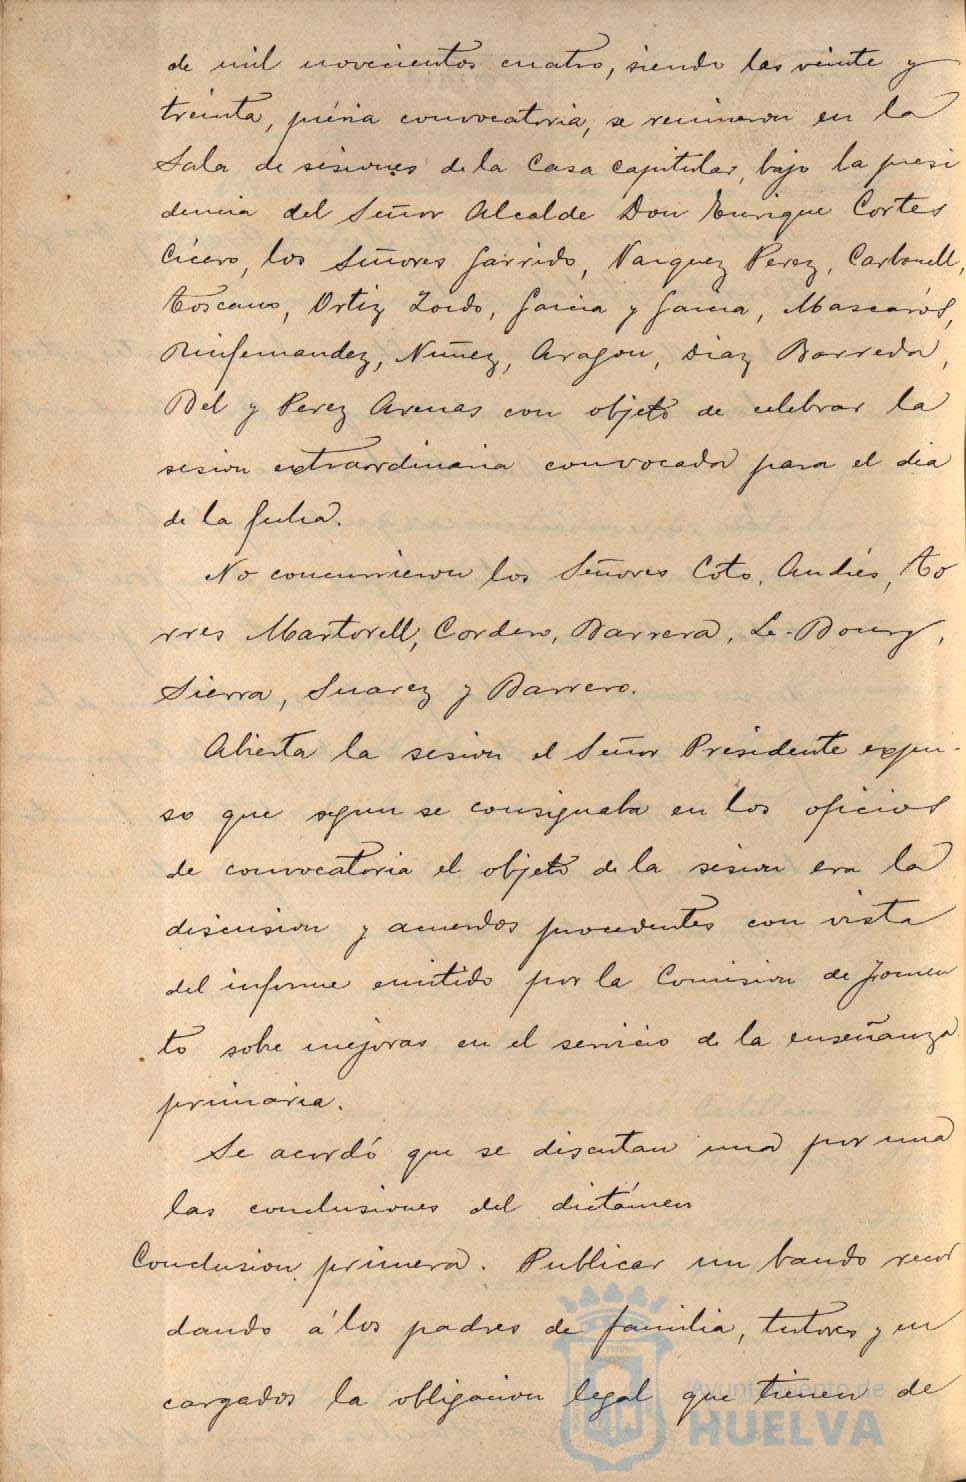 de mil novecientos cuatro, siendo las veinte y
treinta, prévia convocatoria, se reunieron en la
Sala de sesiones de la Casa capitular, bajo la presi
dencia del Señor Alcalde Don Enrique Cortes
Cícero, los Señores Garrido, Vazquez Perez, Carbonell,
Toscano, Ortiz Zoido, Garcia y Garcia, Mascarós,
Rinfernandez, Nuñez, Aragon, Diaz Barreda,
Bel y Perez Arenas con objeto de celebrar la
sesion extraordinaria convocada para el dia
de la fecha.
No concurrieron los Señores Coto, Andrés, To
rres Martorell, Cordero, Barrera, Le-Bourg,
Sierra, Suarez y Barrero.
Abierta la sesion el Señor Presidente expu-
so que segun se consignaba en los oficios
de convocatoria el objeto de la sesion era la
discusion y acuerdos procedentes con vista
del informe emitido por la Comision de Fomen
to sobre mejoras en el servicio de la enseñanza
primaria.
Se acordó que se discutan una por una
las conclusiones del dictámen
Conclusion primera. Publicar un bando recor
dando á los padres de familia, tutores y en
cargados la obligacion legal que tienen de
Ayuntamiento de
HUELVA